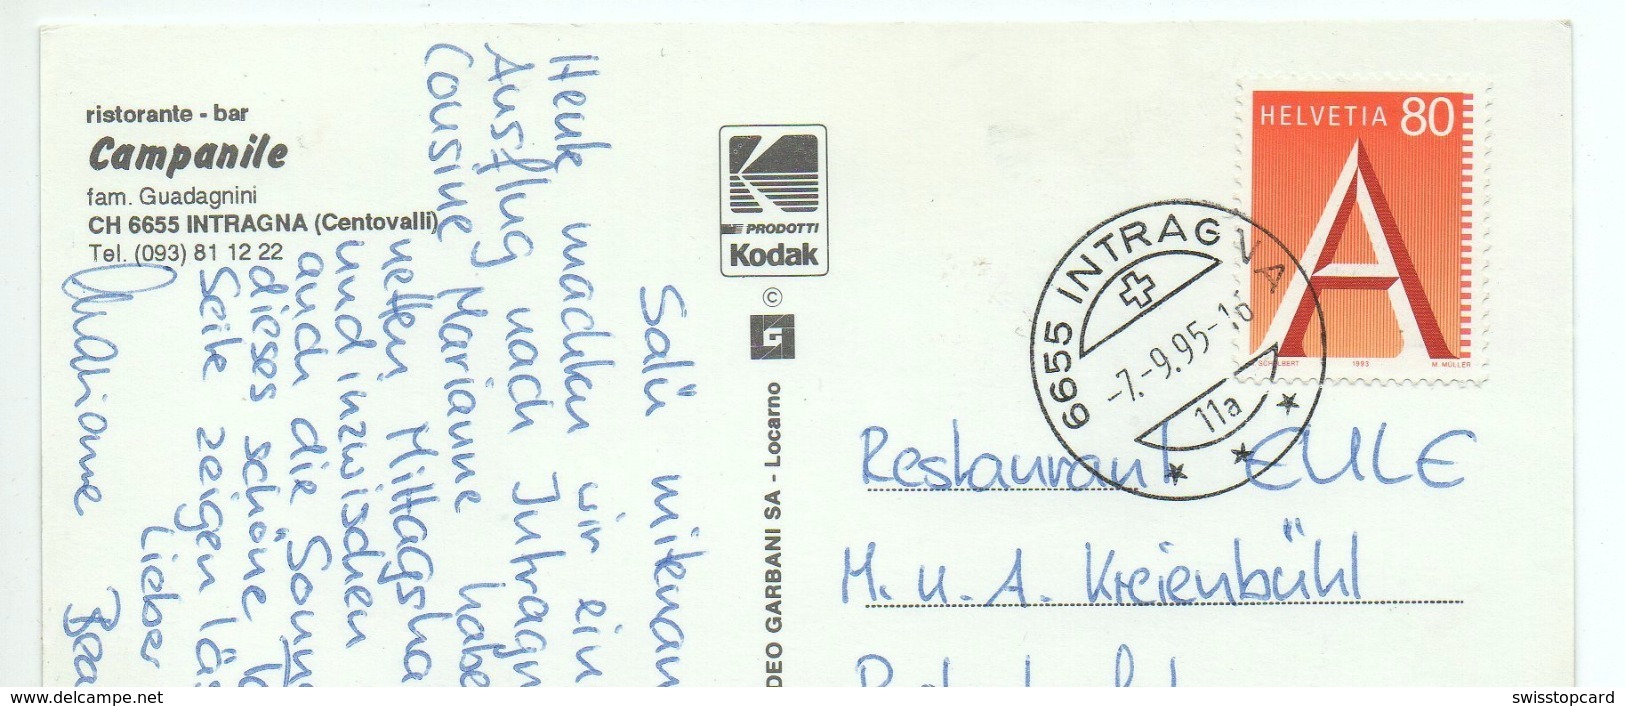 ristorante - bar
Campanile
fam. Guadagnini
CH 6655 INTRAGNA (Centovalli)
Tel. (093) 81 12 22
Salü
Heute machten wir ein
Ausflug nach
Cousine Marianne habe
netten
und inzwischen
auch die
dieses schöne
Seite zeigen
Lieber
Marianne
PRODOTTI
Kodak
©
DEO GARBANI SA - Locarno
HELVETIA 80
A
1993
M. MÜLLER
6655 INTRAGNA
-7.-9.95-16
11a
Restaurant EULE
M. u. A. Kreienbühl
www.delcampe.net
swisstopcard